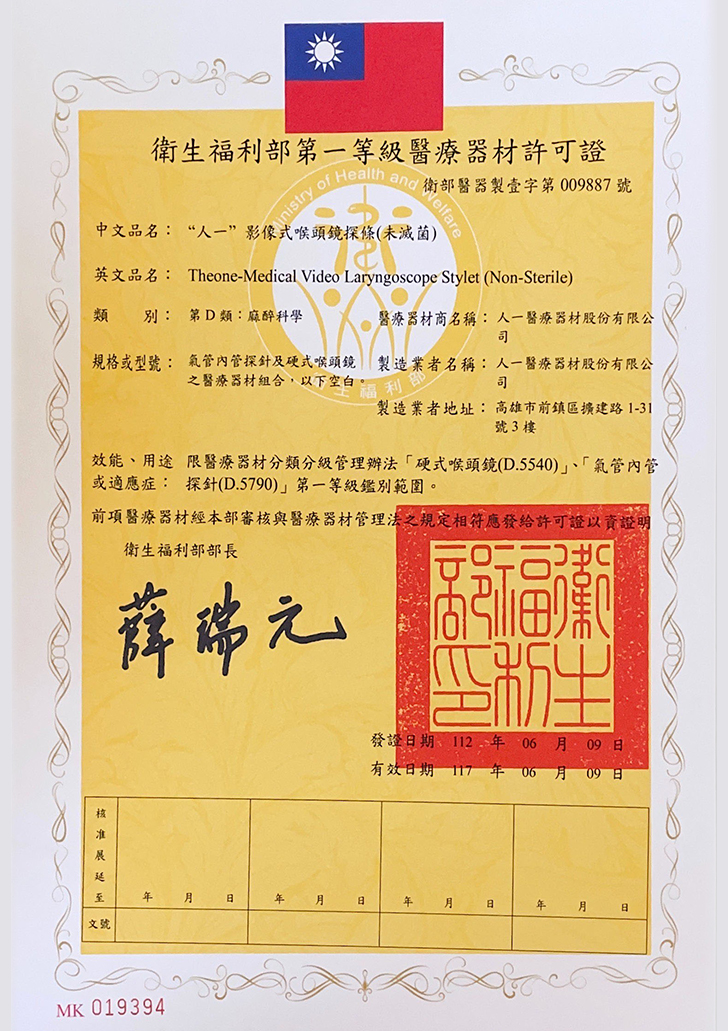 衛生福利部第一等級醫療器材許可證
衛部醫器製壹字第 009887 號
Ministry of Health and Welfare
中文品名： “人一” 影像式喉頭鏡探條(未滅菌)
英文品名： Theone-Medical Video Laryngoscope Stylet (Non-Sterile)
類 別： 第 D 類：麻醉科學
醫療器材商名稱： 人一醫療器材股份有限公
司
規格或型號： 氣管內管探針及硬式喉頭鏡
之醫療器材組合，以下空白。
製造業者名稱： 人一醫療器材股份有限公
司
生福利部
製造業者地址： 高雄市前鎮區擴建路 1-31
號 3 樓
效能、用途 限醫療器材分類分級管理辦法「硬式喉頭鏡(D.5540)」、「氣管內管
或適應症： 探針(D.5790)」第一等級鑑別範圍。
前項醫療器材經本部審核與醫療器材管理法之規定相符應發給許可證以資證明
衛生福利部部長
薛瑞元
衛生福利部印
發證日期 112 年 06 月 09 日
有效日期 117 年 06 月 09 日
核准展延至 年 月 日 年 月 日 年 月 日 年 月 日
文號
MK 019394